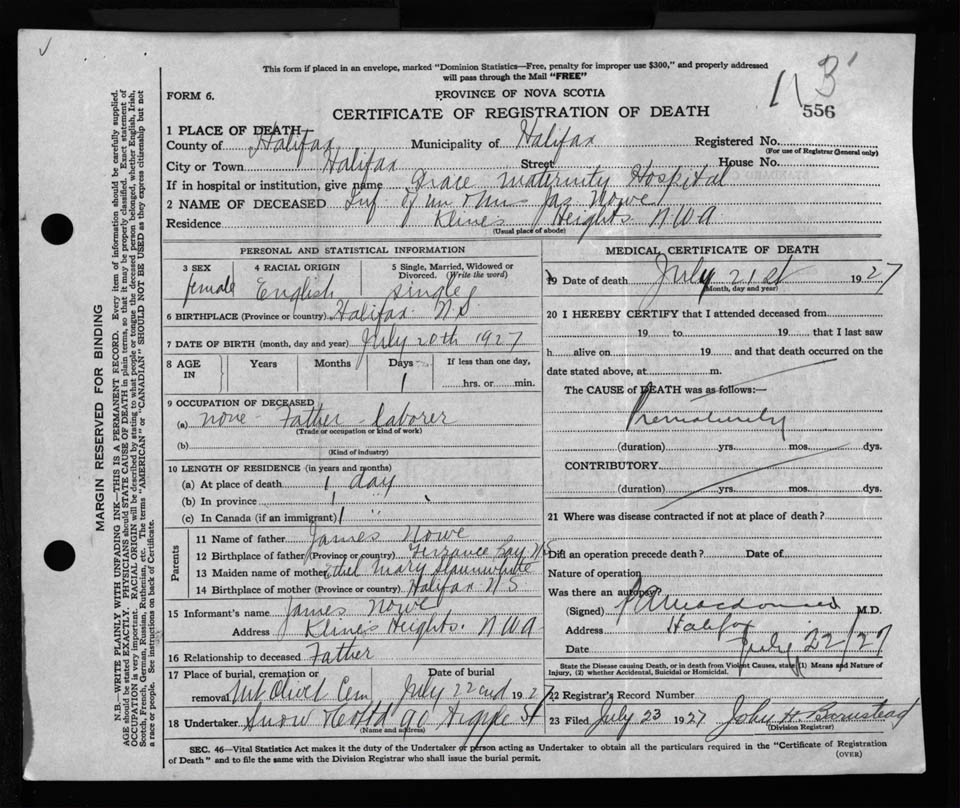 This form if placed in an envelope, marked "Dominion Statistics—Free, penalty for improper use $300," and properly addressed
will pass through the Mail "FREE"
FORM 6.
PROVINCE OF NOVA SCOTIA
CERTIFICATE OF REGISTRATION OF DEATH
113
556
1 PLACE OF DEATH
County of Halifax Municipality of Halifax Registered No.
(For use of Registrar General only)
City or Town Halifax Street House No.
If in hospital or institution, give name Grace Maternity Hospital
2 NAME OF DECEASED Inf. of Mr & Mrs Jas Nowe
Residence Kline's Heights N.W.A
(Usual place of abode)
PERSONAL AND STATISTICAL INFORMATION
3 SEX 4 RACIAL ORIGIN 5 Single, Married, Widowed or
Divorced. (Write the word)
female English single
6 BIRTHPLACE (Province or country) Halifax N.S.
7 DATE OF BIRTH (month, day and year) July 20th 1927
8 AGE IN Years Months Days If less than one day,
1 hrs. or min.
9 OCCUPATION OF DECEASED
(a) none - Father - Laborer
(Trade or occupation or kind of work)
(b)
(Kind of industry)
10 LENGTH OF RESIDENCE (in years and months)
(a) At place of death 1 day
(b) In province 1 "
(c) In Canada (if an immigrant) 1 "
Parents
11 Name of father James Nowe
12 Birthplace of father (Province or country) Terrance Bay N.S
13 Maiden name of mother Ethel Mary Slaunwhite
14 Birthplace of mother (Province or country) Halifax N S
15 Informant's name James Nowe
Address Kline's Heights. N.W.A
16 Relationship to deceased Father
17 Place of burial, cremation or Date of burial
removal Mt Olivet Cem July 22nd 1927
18 Undertaker Snow & Co Ltd 90 Argyle St
(Name and address)
MEDICAL CERTIFICATE OF DEATH
19 Date of death July 21st 1927
(Month, day and year)
20 I HEREBY CERTIFY that I attended deceased from
19 to 19 that I last saw
h alive on 19 and that death occurred on the
date stated above, at m.
The CAUSE of DEATH was as follows:
Prematurity
(duration) yrs. mos. dys.
CONTRIBUTORY
(duration) yrs. mos. dys.
21 Where was disease contracted if not at place of death?
Did an operation precede death? Date of
Nature of operation
Was there an autopsy?
(Signed) Macdonald M.D.
Address Halifax
Date July 22/27
State the Disease causing Death, or in death from Violent Causes, state (1) Means and Nature of
Injury, (2) whether Accidental, Suicidal or Homicidal.
22 Registrar's Record Number
23 Filed July 23 1927 John H. Barnstead
(Division Registrar)
SEC. 46—Vital Statistics Act makes it the duty of the Undertaker or person acting as Undertaker to obtain all the particulars required in the "Certificate of Registration
of Death" and to file the same with the Division Registrar who shall issue the burial permit.
(OVER)
MARGIN RESERVED FOR BINDING
N.B.—WRITE PLAINLY WITH UNFADING INK—THIS IS A PERMANENT RECORD. Every item of information should be carefully supplied.
AGE should be stated EXACTLY. PHYSICIANS should STATE CAUSE OF DEATH in plain terms, so that it may be properly classified. Exact statement of
OCCUPATION is very important. RACIAL ORIGIN will be described by stating to what people or tongue the deceased person belonged, whether English, Irish,
Scotch, French, German, Russian, Ruthenian, etc. The terms "AMERICAN" or "CANADIAN" SHOULD NOT BE USED as they express citizenship but not
a race or people. See instructions on back of Certificate.